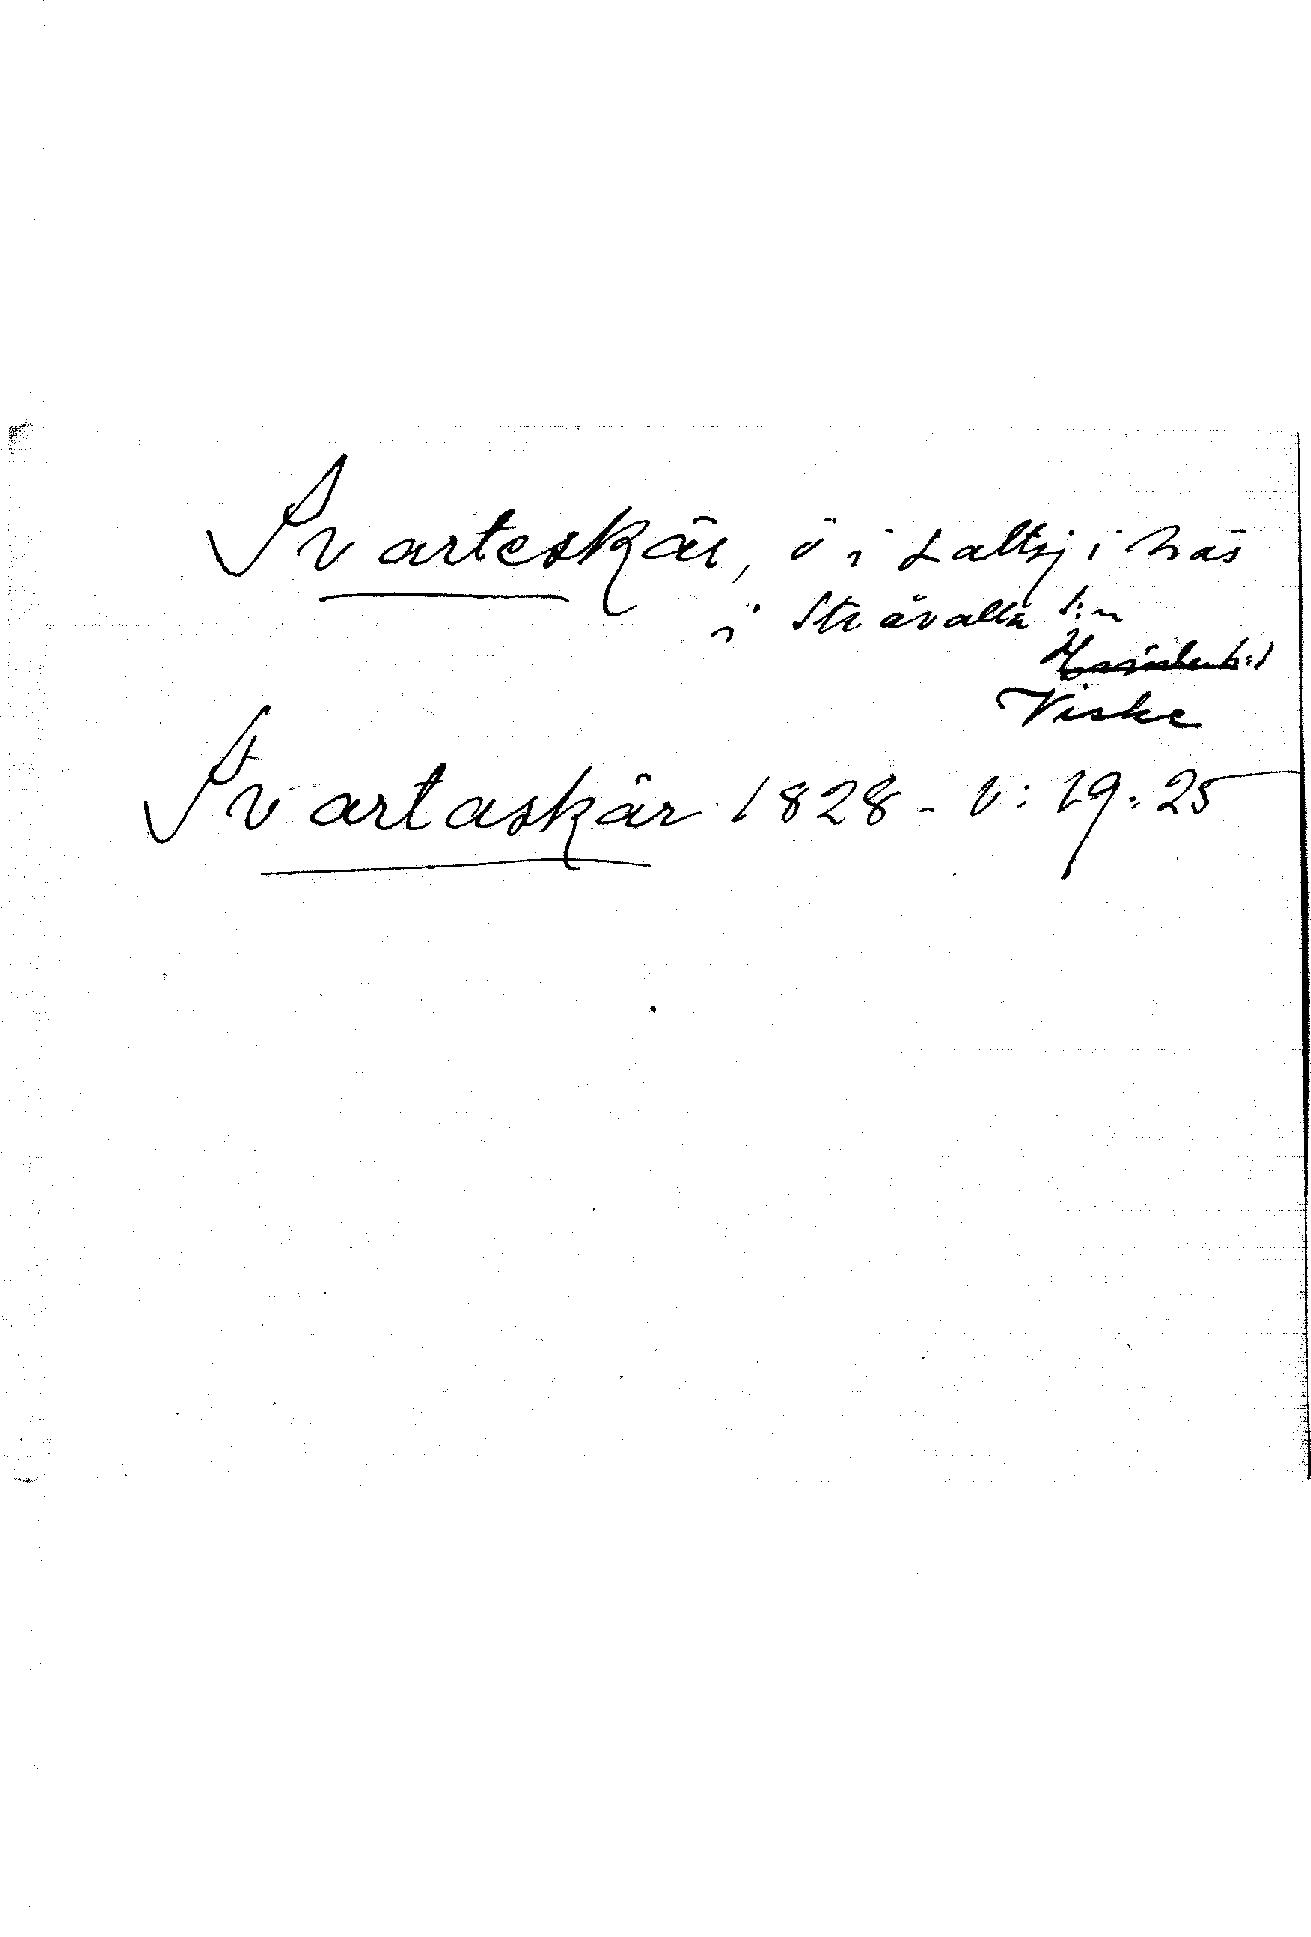 Svarteskär, ö i Saltsj i Näs
i Stråvalla s:n
Viske
Svartaskär 1828 - V: 19: 25